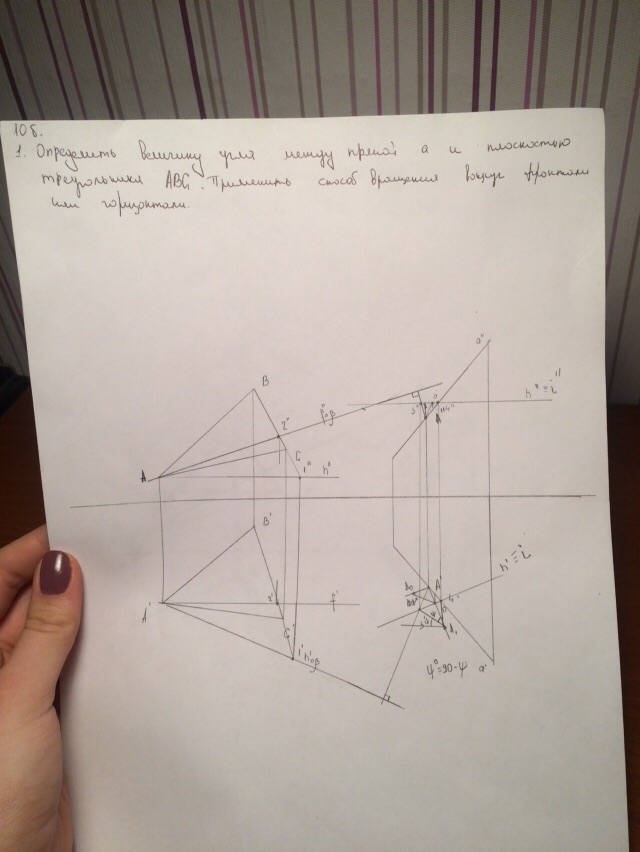 10б.
1. Определить величину угла между прямой а и плоскостью
треугольника ABC. Применить способ вращения вокруг фронтали
или горизонтали.
a''
B
h''≡i''
2''
3''
C
A
1''
h''
B'
h'≡i'
A'
2'
f'
A
4'
C'
A₁
1'
φ°=90-ψ
a'